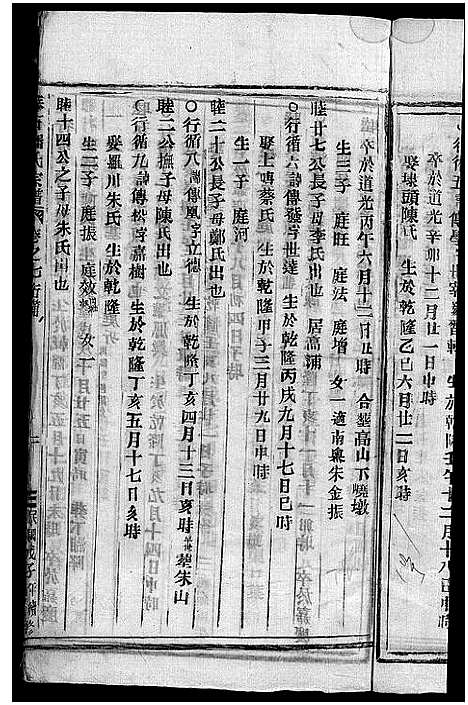 卒於道光辛卯十二月廿一日申時
娶塊頭陳氏 生於乾隆乙巳六月廿二日亥時
卒於道光丙午六月十二日丑時 合塟高山下曉墩
生三子 庭旺 庭法 庭增 女一適南奧朱金振
睦廿七公長子母李氏出也 居高浦
○行循六諱傳發字世達 生於乾隆丙戌九月十七日巳時
娶上塼蔡氏 生於乾隆甲子三月廿九日申時
生一子 庭河
睦二十公長子母鄭氏出也
○行循八諱傳凰字立德 生於乾隆丁亥四月十三日亥時 塟朱山
睦二公撫子母陳氏出也
○行循九諱傳松字嘉樹 生於乾隆丁亥五月十七日亥時
娶羅川朱氏 生於乾隆
生二子 庭振 庭效 女一
睦十四公之子母朱氏出也
氏宗譜 卷之七行